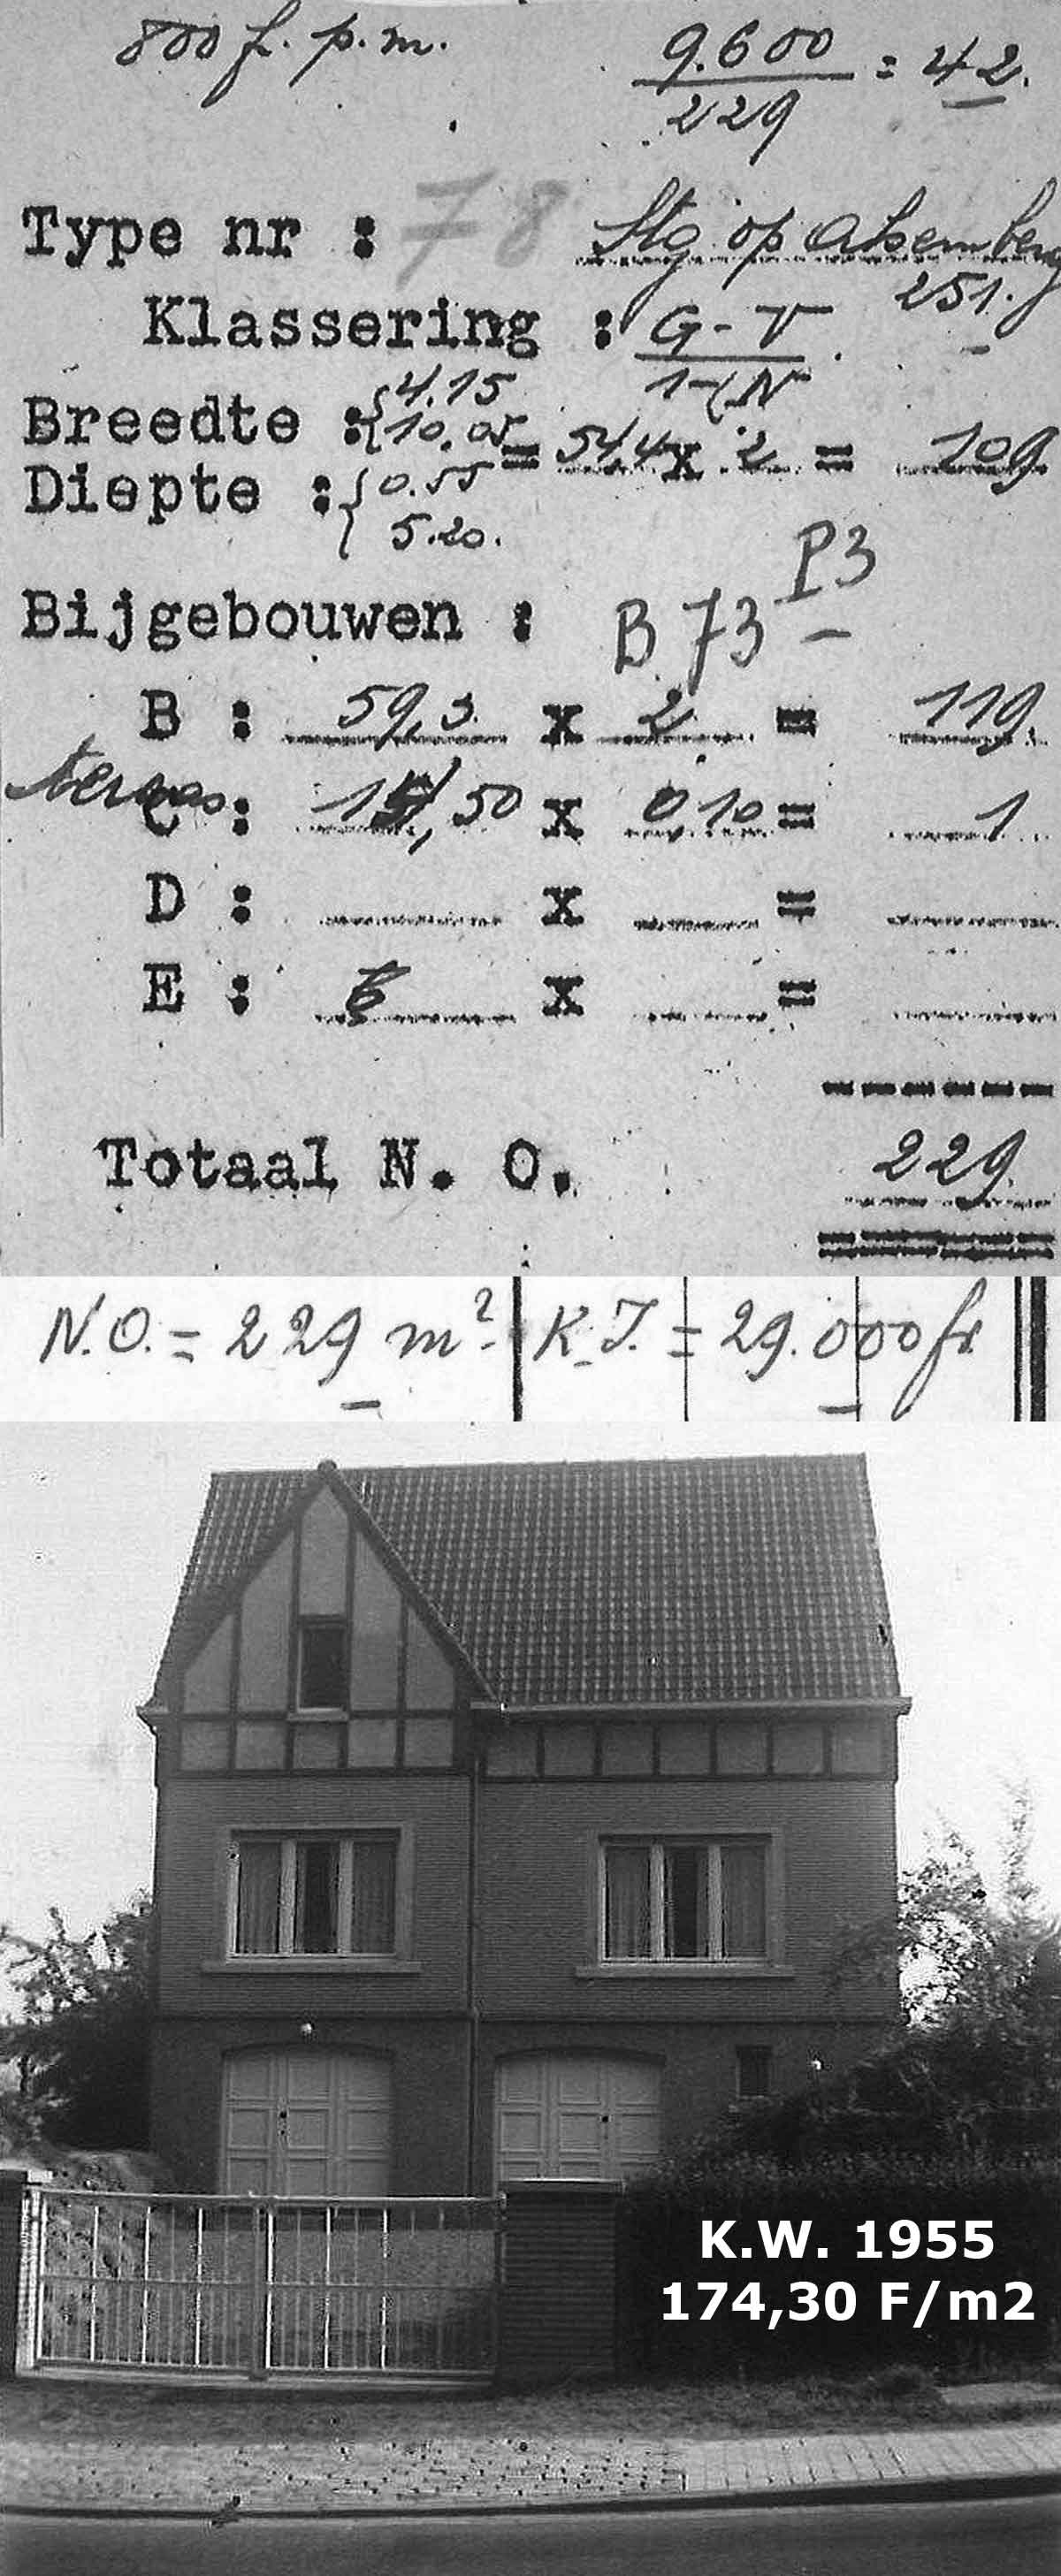 800 f. p.m.
9.600 / 229 = 42.
Type nr : 78 Stg op Alsemberg
251.
Klassering : G-V
1-N
Breedte : { 4.15
10.05 = 54,4 x 2 = 109
Diepte : { 0.55
5.20.
P3
Bijgebouwen : B 73
B : 59,5 x 2 = 119.
terras C : 1,50 x 0,10 = 1
D : x =
E : x =
Totaal N. O. 229.
N.O. = 229 m². K.I. = 29.000 fr
K.W. 1955
174,30 F/m2